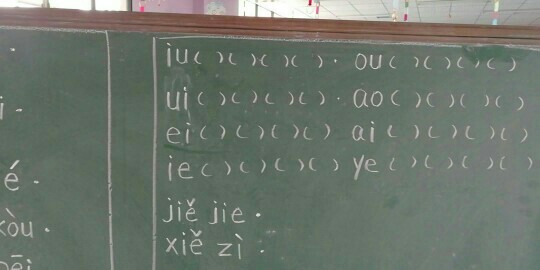 iu( )( )( )( ). ou( )( )( )( )
ui( )( )( )( ). ao( )( )( )( )
ei( )( )( )( ) ai( )( )( )( )
ie( )( )( )( ) ye( )( )( )( )
é.
jiě jie.
kòu.
xiě zì.